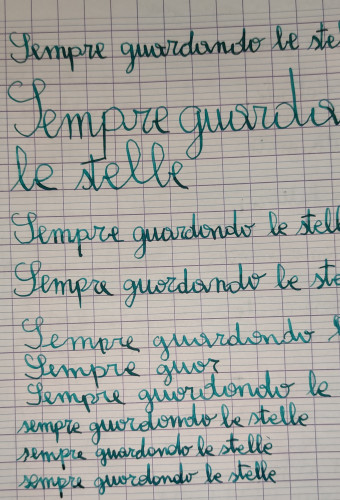 Sempre guardando le ste
Sempre guarda
le stelle
Sempre guardando le stell
Sempre guardando le ste
Sempre guardando
Sempre guar
Sempre guardando le
sempre guardando le stelle
sempre guardando le stelle
sempre guardando le stelle